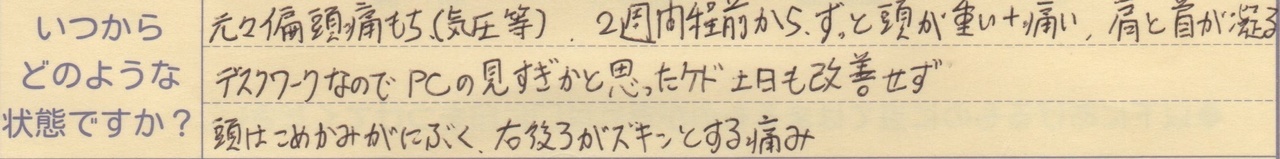 いつから
どのような
状態ですか?
元々偏頭痛もち(気圧等)、2週間程前から、ずっと頭が重い+痛い、肩と首が凝る
デスクワークなのでPCの見すぎかと思ったケド土日も改善せず
頭はこめかみがにぶく、右後ろがズキンとする痛み